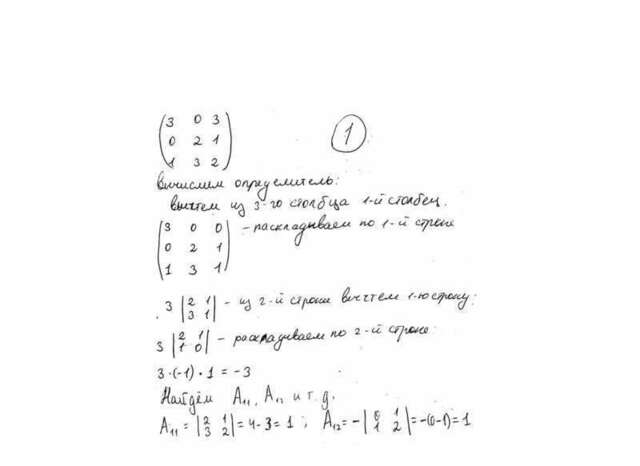 (3 0 3)
(0 2 1) 1
(1 3 2)
Вычислим определитель:
вычтем из 3-го столбца 1-й столбец.
(3 0 0) - раскладываем по 1-й строке
(0 2 1)
(1 3 1)
3 |2 1| - из 2-й строки вычтем 1-ю строку:
|3 1|
3 |2 1| - раскладываем по 2-й строке:
|1 0|
3·(-1)·1 = -3
Найдём A11, A12 и т.д.
A11 = |2 1; 3 2| = 4-3 = 1 ; A12 = -|0 1; 1 2| = -(0-1) = 1